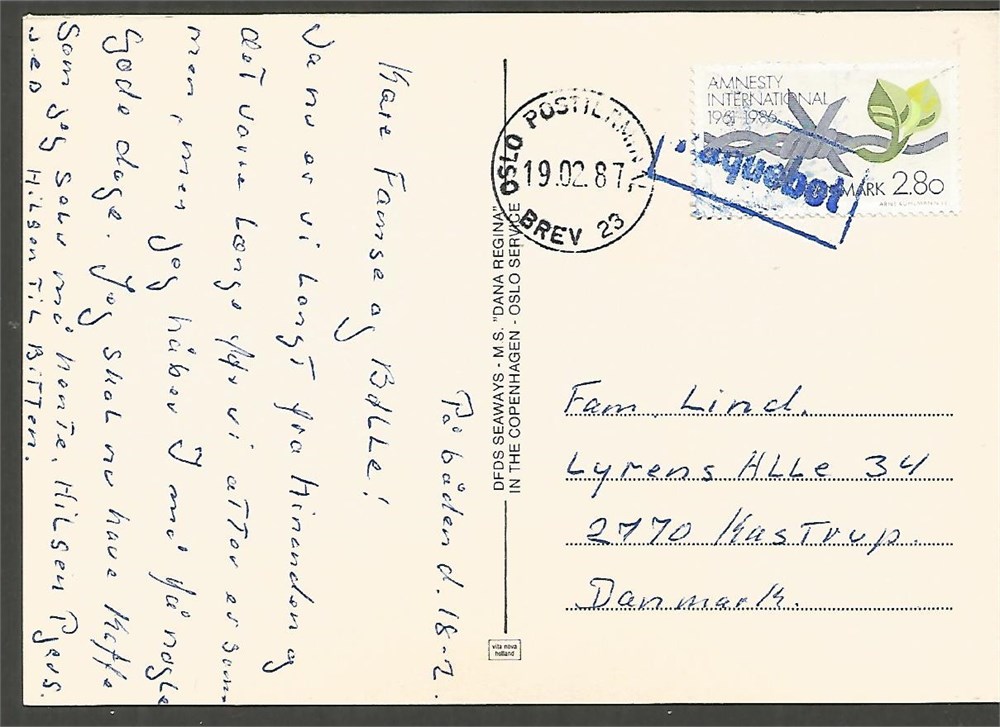 På båden d. 18-2.
Kære Famse og Bølle!
Ja nu er vi Langt fra hinanden og
det varer Længe før vi atter er som
men, men jeg håber I må få nogle
gode dage. Jeg skal nu have Kaffe
som jeg selv må hente. Hilsen Pjevs.
J.E.D Hilsen til Bitten.
DFDS SEAWAYS - M.S. "DANA REGINA"
IN THE COPENHAGEN - OSLO SERVICE
vita nova
holland
OSLO POSTTERMINAL
19.02.87
BREV 23
AMNESTY
INTERNATIONAL
1961-1986
Paquebot
DANMARK 2.80
Fam. Lind.
Lyrens ALLe 34
2770 Kastrup.
Danmark.